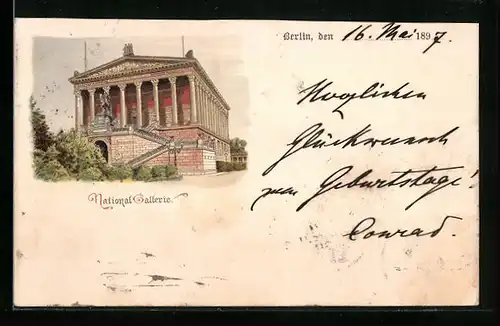 Berlin, den 16. Mai 1897.
Herzlichen
Glückwunsch
zum Geburtstage!
Conrad.
National Gallerie.